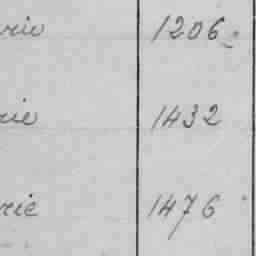 rie 1206
rie 1432
rie 1476